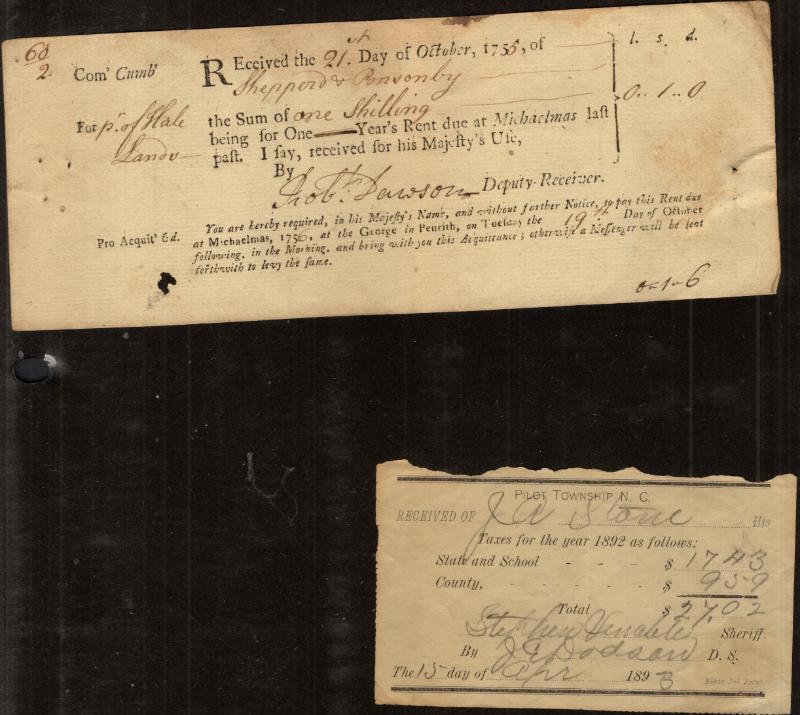 60
2.
Com' Cumb'
REceived the 21st Day of October, 1755, of
l. s. d.
Shepperd & Ponsonby
For pt. of Hale
Lands
the Sum of one Shilling
0 .. 1 .. 0
being for One Year's Rent due at Michaelmas last
past. I say, received for his Majesty's Use,
By
Robt. Dawson Deputy-Receiver.
Pro Acquit' 6d.
You are hereby required, in his Majesty's Name, and without farther Notice, to pay this Rent due
at Michaelmas, 1756, at the George in Penrith, on Tuesday the 19th Day of October
following, in the Morning, and bring with you this Acquittance; otherwise a Messenger will be sent
forthwith to levy the same.
0-1-6
PILOT TOWNSHIP N. C.
RECEIVED OF J A Stone His
Taxes for the year 1892 as follows:
State and School - - - $ 1743
County, - - - - - $ 959
Total $ 27.02
Stephen Venable Sheriff.
By J E Dodson D. S.
The 15 day of Apr 1893